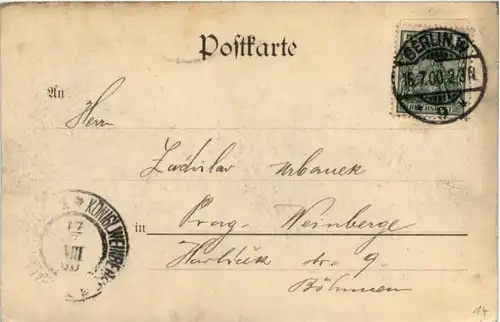 Postkarte
BERLIN, W.
15.7.00. 2-3N.
An
Herr
Ladislav Urbanek
in Prag-Weinberge
Havlíček str. 9.
Böhmen
KÖNIGL. WEINBERGE
17
VII
00
14